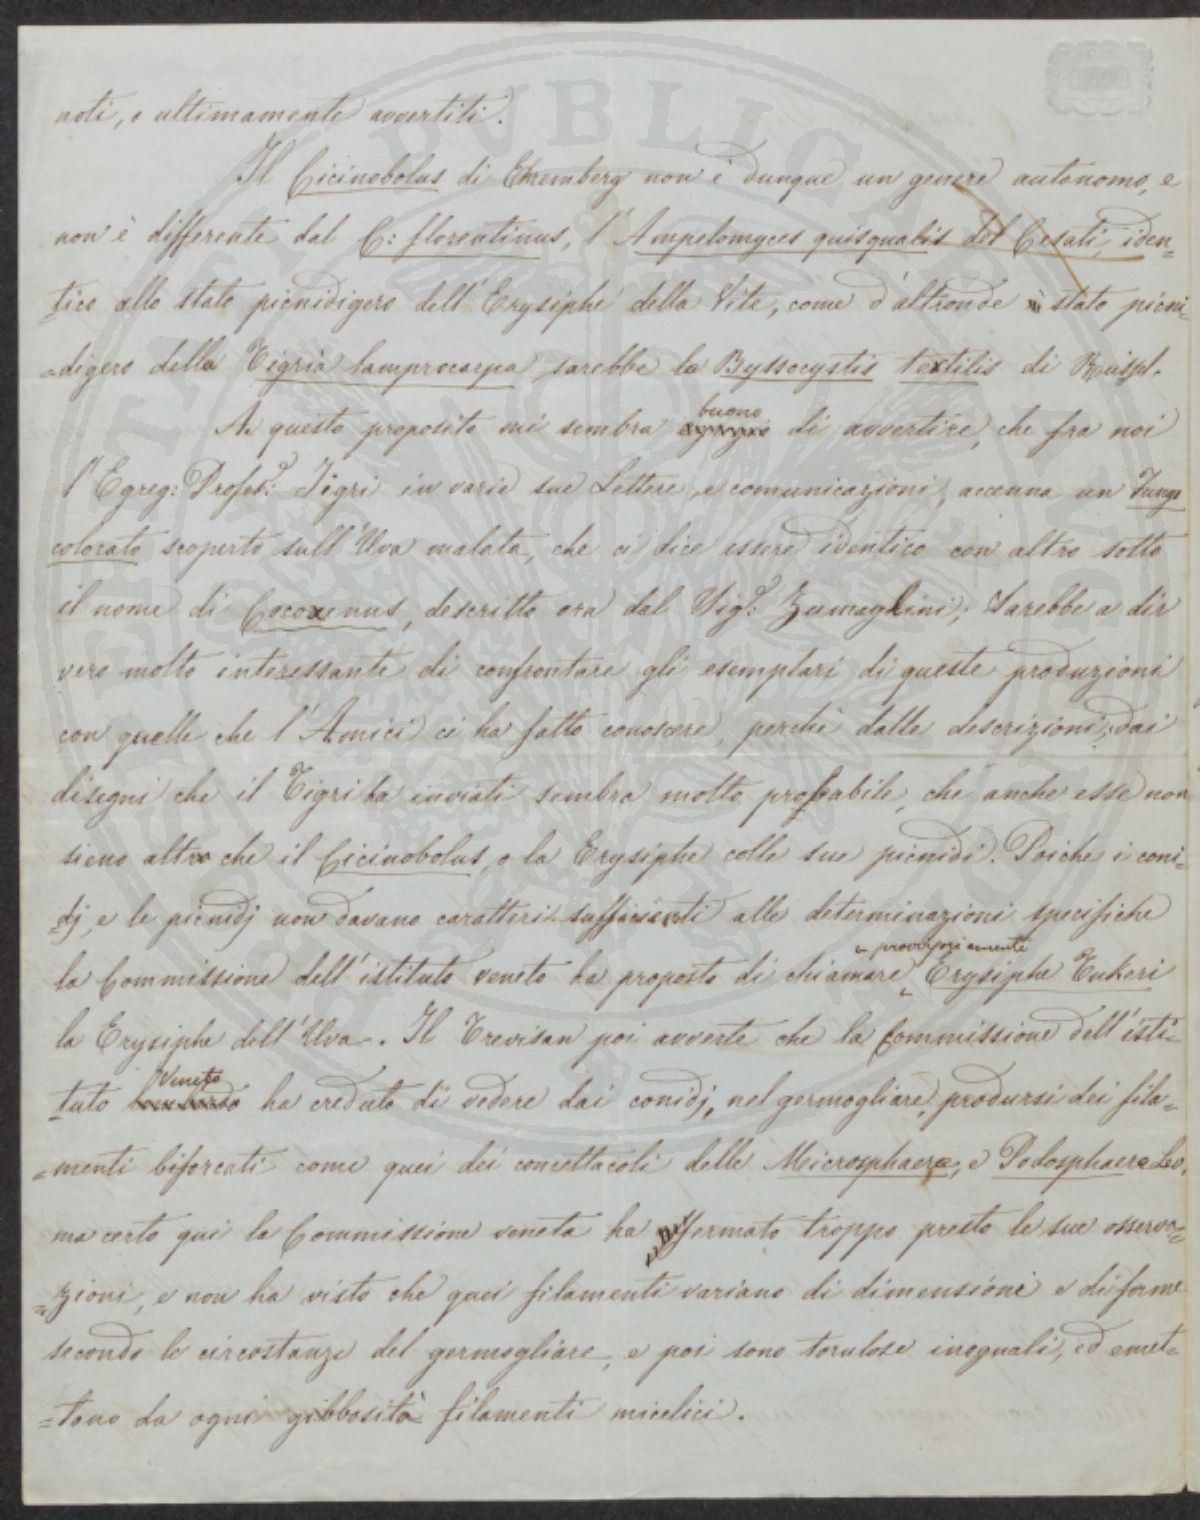 noti, o ultimamente avvertiti.
Il Cicinobolus di Ehremberg non è dunque un genere autonomo, e
non è differente dal C: florentinus, l'Ampelomyces quisqualis del Cesati, iden-
-tico allo stato picnidigero dell'Erysiphe della Vite, come d'altronde stato picni-
-digero della Tigria lamprocarpa sarebbe la Byssocystis textilis di Reispl.
A questo proposito mi sembra buono di avvertire, che fra noi
l'Egreg: Profes.e Tigri in varie sue Lettere, e comunicazioni, accenna un Fungo
colorato scoperto sull'Uva malata, che ci dice essere identico con altro sotto
il nome di Cocoxenus, descritto ora dal Sig.e Zumaglini; Sarebbe a dir
vero molto interessante di confrontare gli esemplari di queste produzioni
con quelle che l'Amici ci ha fatto conoscere, perchè dalle descrizioni, dai
disegni che il Tigri ha inviati sembra molto probabile, che anche esse non
sieno altro che il Cicinobolus, o la Erysiphe colle sue picnidi. Poiche i coni-
-dj, e le picnidj non davano caratteri sufficienti alle determinazioni specifiche
la Commissione dell'istituto veneto ha proposto di chiamare provvisoriamente Erysiphe Tukeri
la Erysiphe dell'Uva. Il Trevisan poi avverte che la Commissione dell'isti-
tuto Veneto ha creduto di vedere dai conidj, nel germogliare, prodursi dei fila-
=menti biforcati come quei dei concettacoli delle Meicrosphaere, e Podosphaere Lev.
ma certo qui la Commissione veneta ha fermato troppo presto le sue osserva-
=zioni, e non ha visto che quei filamenti variano di dimensione e di forme
secondo le circostanze del germogliare, e poi sono torulose ineguali, ed emet-
=tono da ogni gibbosità filamenti micelici.